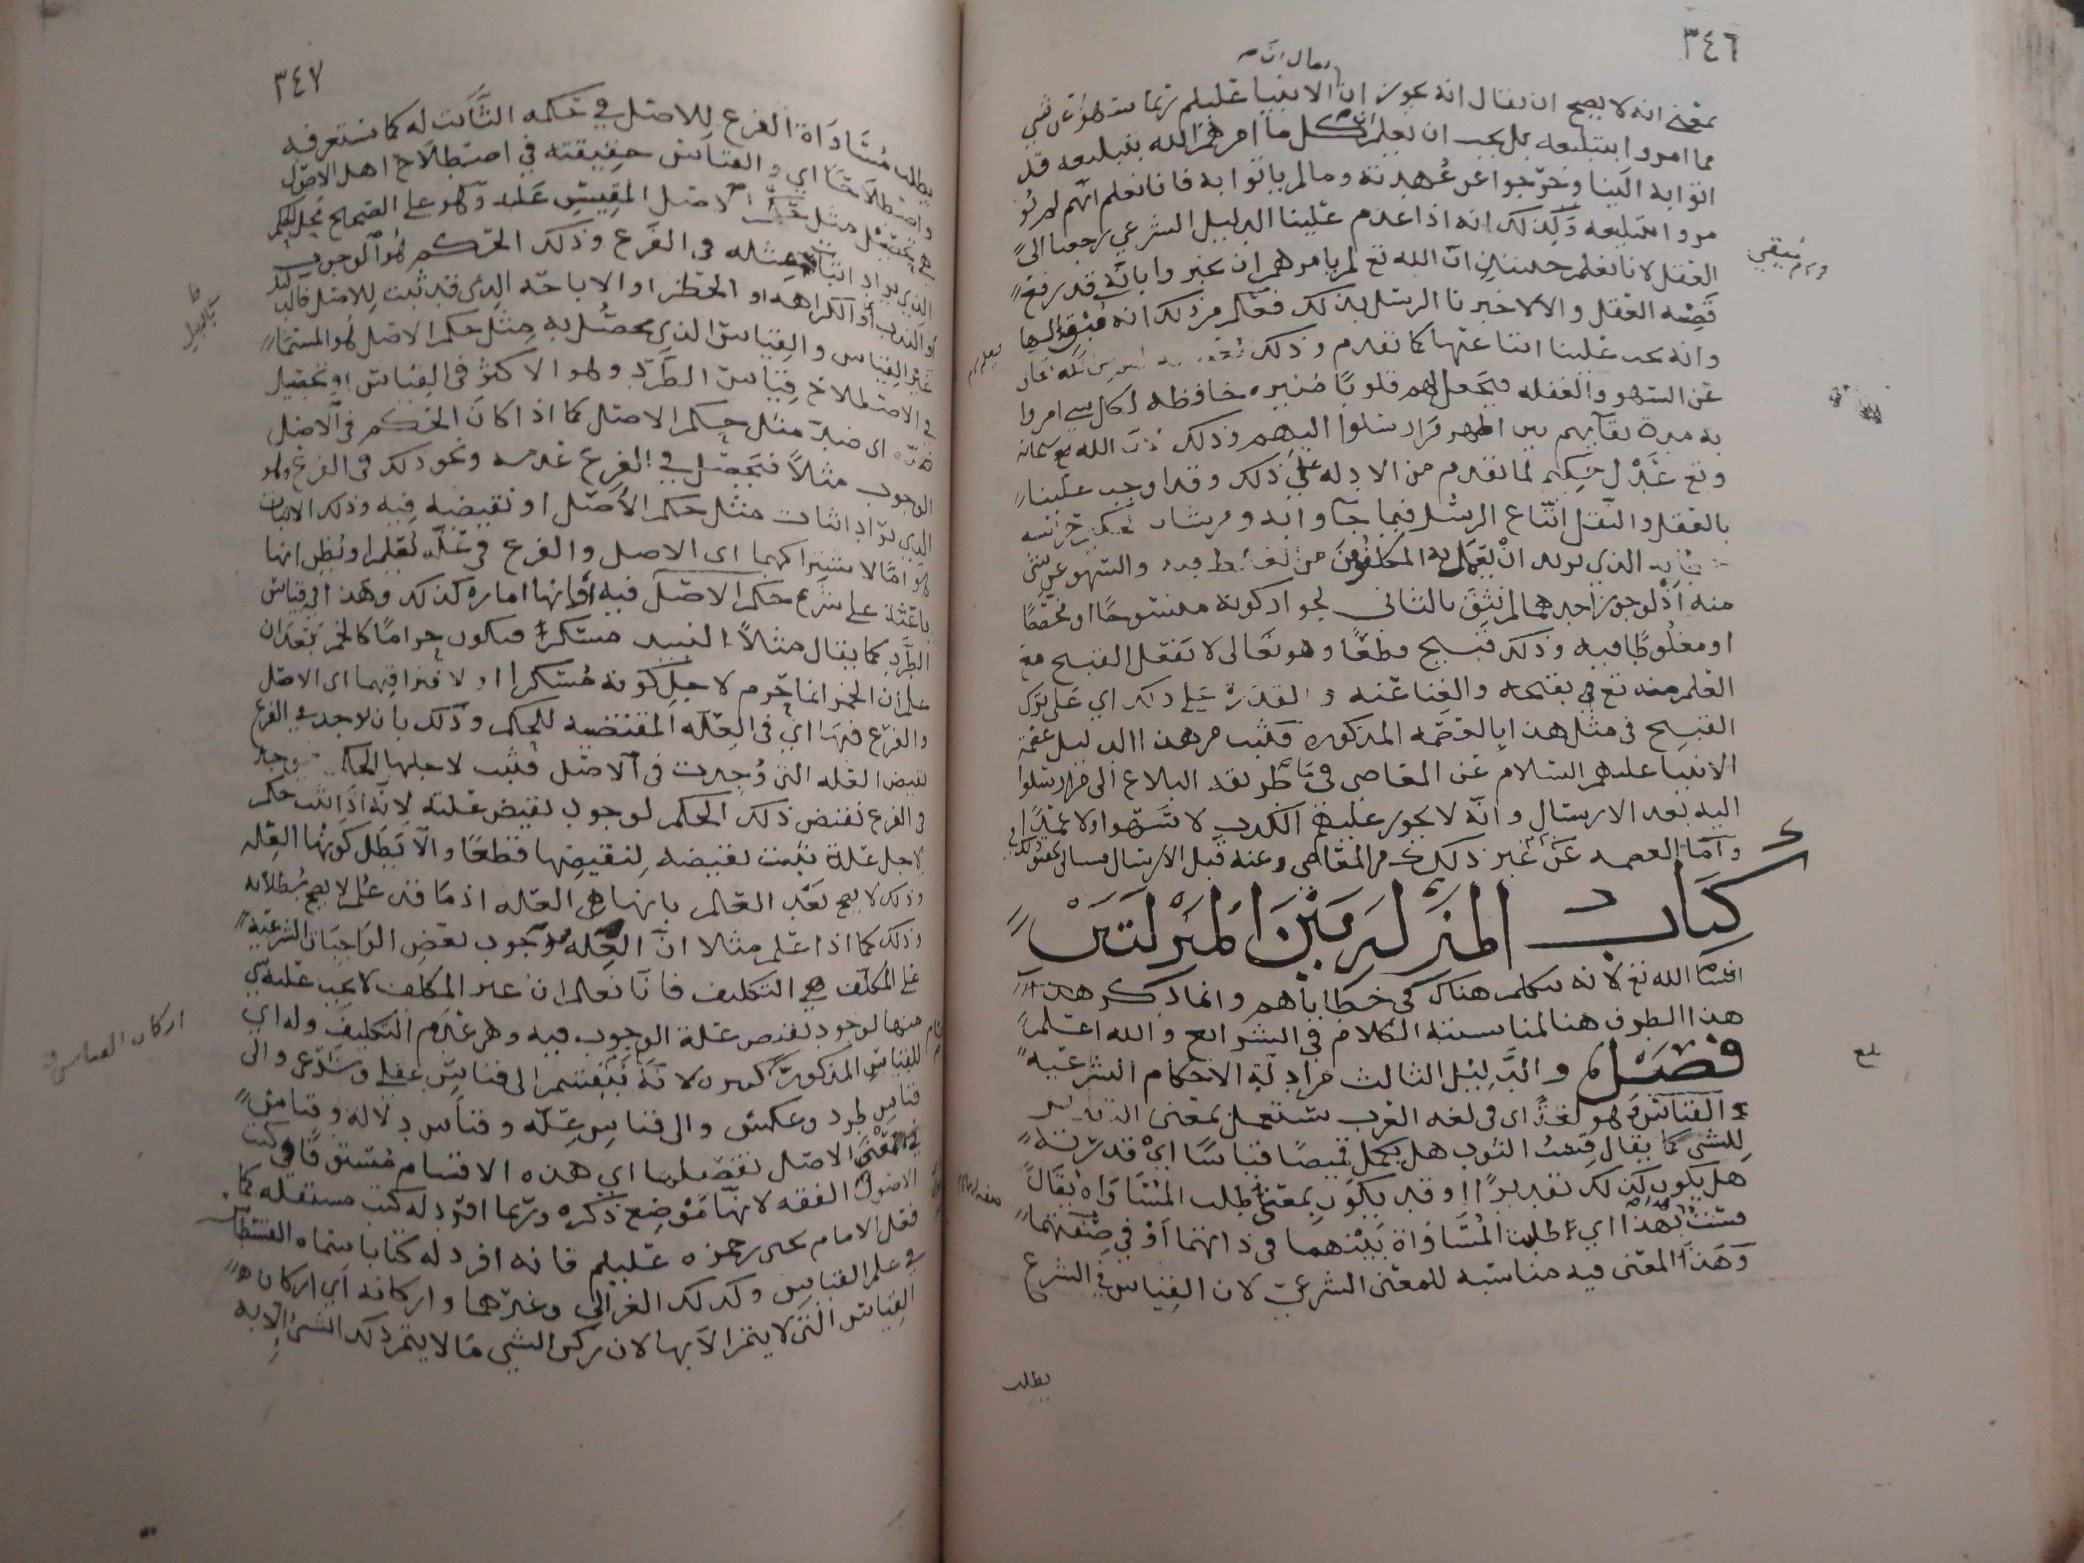 ٣٤٦
يقال ان
بمعنى انه لا يصح ان يقال انه يجوز ان الانبيا عليلم ربما سهوا عن شي
مما امروا بتبليغه بل يجب ان يعلم ان كل ما امرهم الله بتبليغه قد
اتوا به الينا وخرجوا عن عهدته وما لم ياتوا به فانا نعلم انهم لم يو
مروا بتبليغه وكذلك انه اذا عدم علينا الدليل الشرعي رجعنا الى
العقل لانا نعلم حينئذ ان الله تع لم يامرهم ان بخبر وابانه قد رفع
قضيه العقل والا لاخبرنا الرسل بذلك فعلم من ذلك انه مبق اليها
وانه يجب علينا اتباعها كما تقدم وذلك
عن السهو والغفله فيجعل لهم قلوبًا منيره حافظه لكل شي امروا
به مدة بقآيهم بين اظهر من ارسلوا اليهم وذلك لان الله تع سبحانه
وتع عدل حكيم لما تقدم من الادله على ذلك وقد اوجب علينا
بالعقل والنقل اتباع الرسل فيما جآوا به
الذي يريد ان يعمل به المكلفون من والسهو عن شي
منه اذ لو جوز احدهما لم نثق بالثاني لجواز كونه منسوخًا او مخصصًا
او مغلوطًا فيه وذلك قبيح قطعًا وهو تعالى لا يفعل القبيح مع
العلم منه تع في بقبحه والغنا عنه والقدرة على ذلك اي على ترك
القبيح في مثل هذا بالعصمه المذكوره فثبت من هذا الدليل عصمة
الانبيا عليهم السلام عن المعاصي في ما طريقه البلاغ الى من ارسلوا
اليه بعد الارسال وانه لا يجوز عليهم الكذب لا سهوا ولا عمدًا
وامّا العصمه عن غير ذلك من المعاصي وعنه قبل الارسال
كتاب المنزله بين المنزلتين
انشا الله تع لانه يتكلم هناك في خطاياهم وانما ذكر هذا
هذا الطرف هنا لمناسبته الكلام في الشرايع والله اعلم
فصل والدليل الثالث من ادلة الاحكام الشرعيه
القياس وهو لغةً اي في لغه العرب يستعمل بمعنى التقدير
للشي كما يقال قست الثوب هل يكمل قميصًا قياسًا اي قدرته
هل يكون كذلك تقديرًا وقد يكون بمعنى طلب المساواه يقال
قست بهذا اي طلبت المساواة بينهما في ذاتهما او في صفتهما
وهذا المعنى فيه مناسبه للمعنى الشرعي لان القياس في الشرع
يطلب
بلغ
٣٤٧
يطلب مساواة الفرع للاصل في حكمه الثابت له كما ستعرفه
واصطلاحًا اي والقياس حقيقته في اصطلاح اهل الاصول
هي تحصيل مثل حكم الاصل المقيس عليه وهو على الصحيح محل الحكم
الذي يراد اثبات مثله في الفرع وذلك الحكم هو الوجوب
او الندب او الكراهه او الحظر او الاباحه الذي قد ثبت للاصل
غير القياس والقياس الذي يحصل به مثل حكم الاصل هو المسمّا
في الاصطلاح قياس الطرد وهو الاكثر في القياس او تحصيل
ضده اي ضد مثل حكم الاصل كما اذا كان الحكم في الاصل
الوجوب مثلاً فيحصل في الفرع عدمه ونحو ذلك في الفرع وهو
الذي يراد اثبات مثل حكم الاصل او نقيضه فيه وذلك الاثبات
هو امّا لاشتراكهما اي الاصل والفرع في علّه نعلم او نظن انها
باعثة على شرع حكم الاصل فيه او انها اماره كذلك وهذا في قياس
الطرد كما يقال مثلاً النبيذ مسكر فيكون حرامًا كالخمر بعد ان
علم ان الخمر انما حرم لاجل كونه مسكرا او لافتراقهما اي الاصل
والفرع فيها اي في العله المقتضيه للحكم وذلك بان لا جد في الفرع
نقيض العله التي وجدت في الاصل فثبت لاجلها الحكم
في الفرع نقيض ذلك الحكم لوجوب نقيض علته لانه اذا ثبت حكم
لاجل علة ثبت نقيضه لنقيضها قطعًا والا بطل كونها العله
وذلك لا يصح بعد العلم بانها هي العله اذ ما قد علم لا يصح بطلانه
وذلك كما اذا علم مثلا ان العله في وجوب بعض الواجبات الشرعيه
على المكلف هي التكليف فانا نعلم ان غير المكلف لا يجب عليه شي
منها لوجود نقيض علة الوجوب فيه وهو عدم التكليف وله اي
للقياس المذكور كسره لانه ينقسم الى قياس عقلي وشرعي والى
قياس طرد وعكس والى قياس علّه وقياس دلاله وقياس
في معنى الاصل تفصيلها اي هذه الاقسام مستوفًا في كتب
الاصول الفقه لانها موضع ذكره وربما افرد له كتب مستقله كما
فعل الامام يحيى بن حمزه عليلم فانه افرد له كتابا سماه القسطاس
في علم القياس وكذلك الغزالي وغيرهما واركانه اي اركان
القياس التي لا يتم الا بها لان ركن الشي ما لا يتم ذلك الشي الا به
اركان القياس